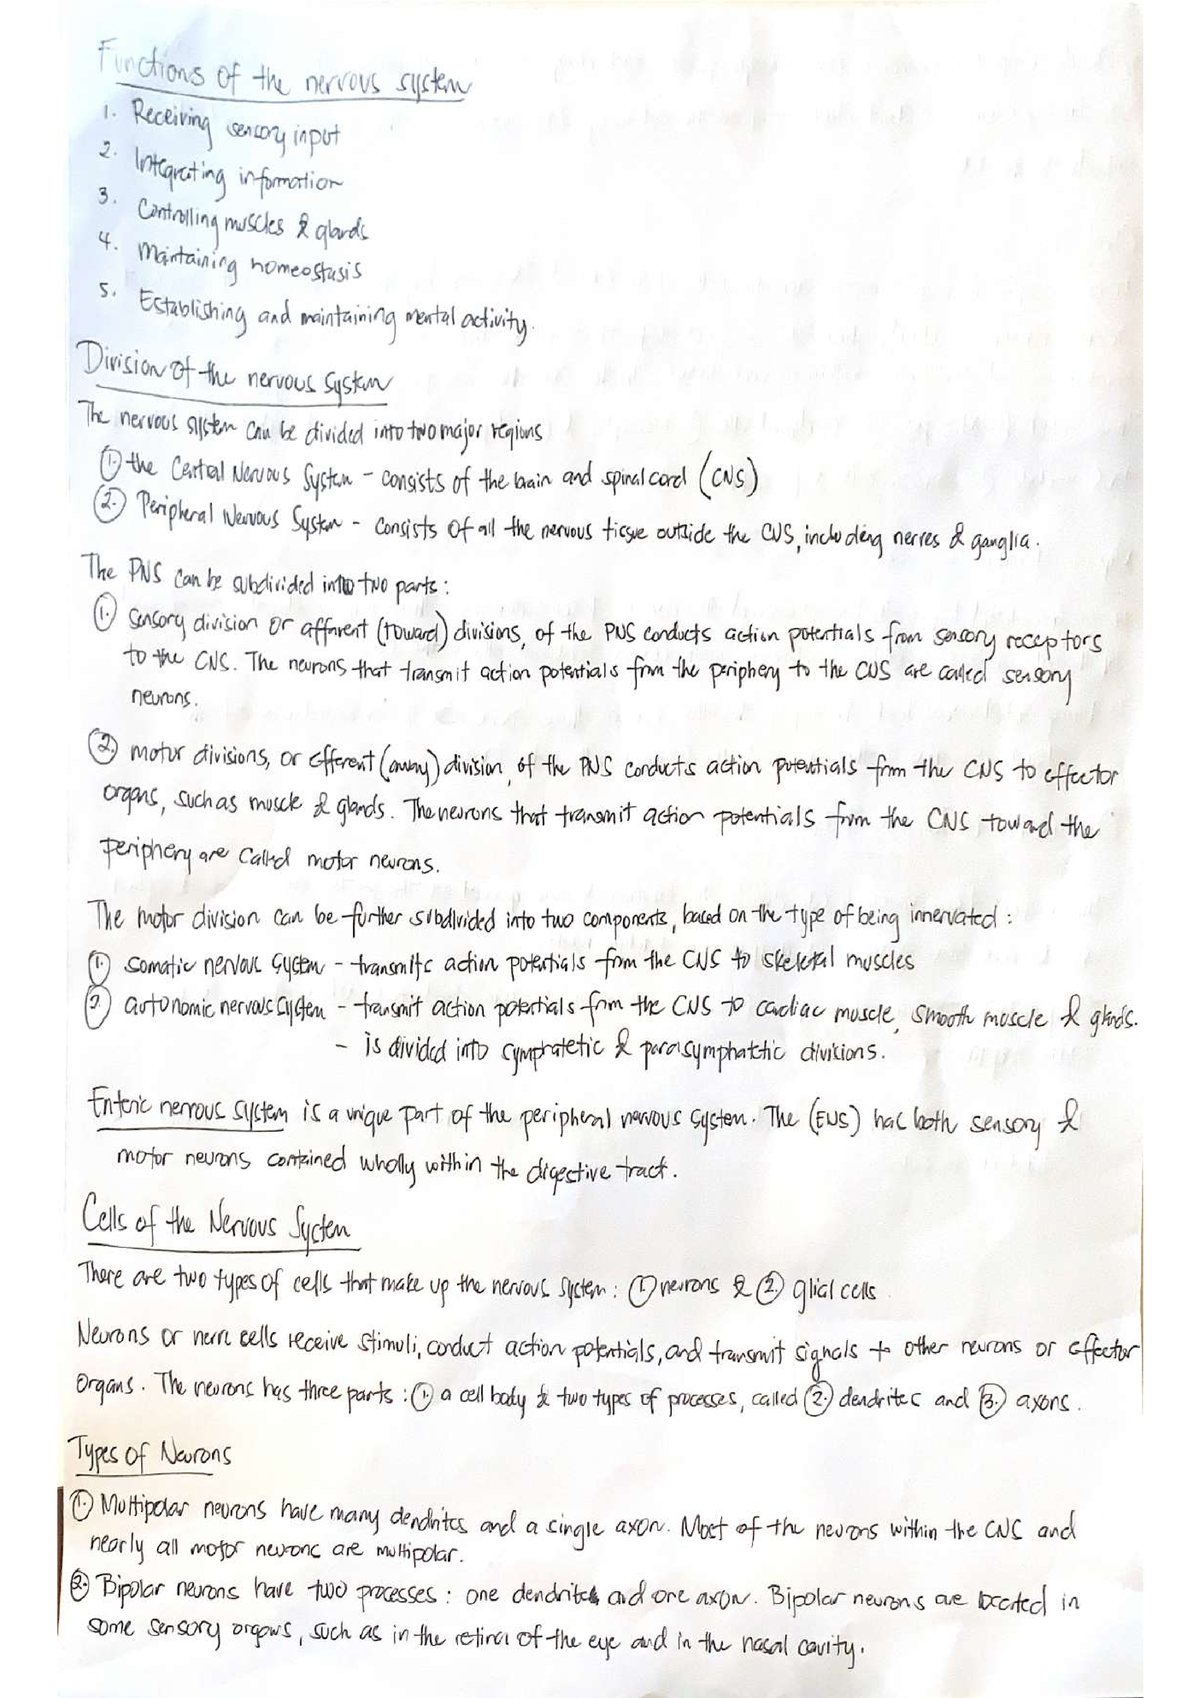 Functions of the nervous system
1. Receiving sensory input
2. Integrating information
3. Controlling muscles & glands
4. Maintaining homeostasis
5. Establishing and maintaining mental activity.
Division of the nervous system
The nervous system can be divided into two major regions
1. the Central Nervous System - consists of the brain and spinal cord (CNS)
2. Peripheral Nervous System - consists of all the nervous tissue outside the CNS, including nerves & ganglia.
The PNS can be subdivided into two parts:
1. sensory division or afferent (toward) divisions, of the PNS conducts action potentials from sensory receptors
to the CNS. The neurons that transmit action potentials from the periphery to the CNS are called sensory
neurons.
2. motor divisions, or efferent (away) division, of the PNS conducts action potentials from the CNS to effector
organs, such as muscle & glands. The neurons that transmit action potentials from the CNS toward the
periphery are called motor neurons.
The motor division can be further subdivided into two components, based on the type of being innervated:
1. somatic nervous system - transmits action potentials from the CNS to skeletal muscles
2. autonomic nervous system - transmit action potentials from the CNS to cardiac muscle, smooth muscle & glands.
- is divided into symphatetic & parasymphatetic divisions.
Enteric nervous system is a unique part of the peripheral nervous system. The (ENS) has both sensory &
motor neurons contained wholly within the digestive tract.
Cells of the Nervous System
There are two types of cells that make up the nervous system: 1. neurons & 2. glial cells
Neurons or nerve cells receive stimuli, conduct action potentials, and transmit signals to other neurons or effector
organs. The neurons has three parts: 1. a cell body & two types of processes, called 2. dendrites and 3. axons.
Types of Neurons
1. Multipolar neurons have many dendrites and a single axon. Most of the neurons within the CNS and
nearly all motor neurons are multipolar.
2. Bipolar neurons have two processes: one dendrite and one axon. Bipolar neurons are located in
some sensory organs, such as in the retina of the eye and in the nasal cavity.